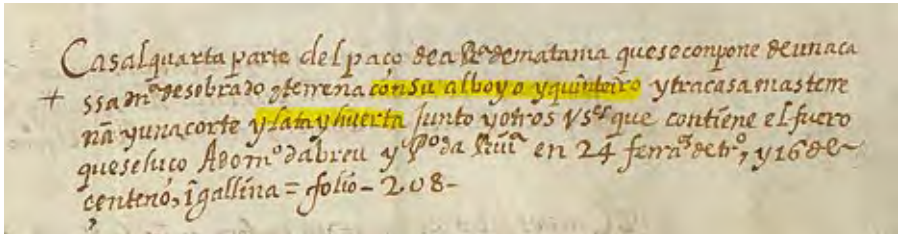 Casal quarta parte del paço de a Rª de matama que se conpone de una ca
+ ssa mª de sobrado y terrena con su alboyo y quinteiro y tra casa mas terre
nă y una corte y lata y huerta junto y otros Usº que contiene el fuero
que se hiço A domº dabreu y Pº da en 24 ferrªˢ de trº, y 16 de
çenteno, 1 gallina = folio - 208 -